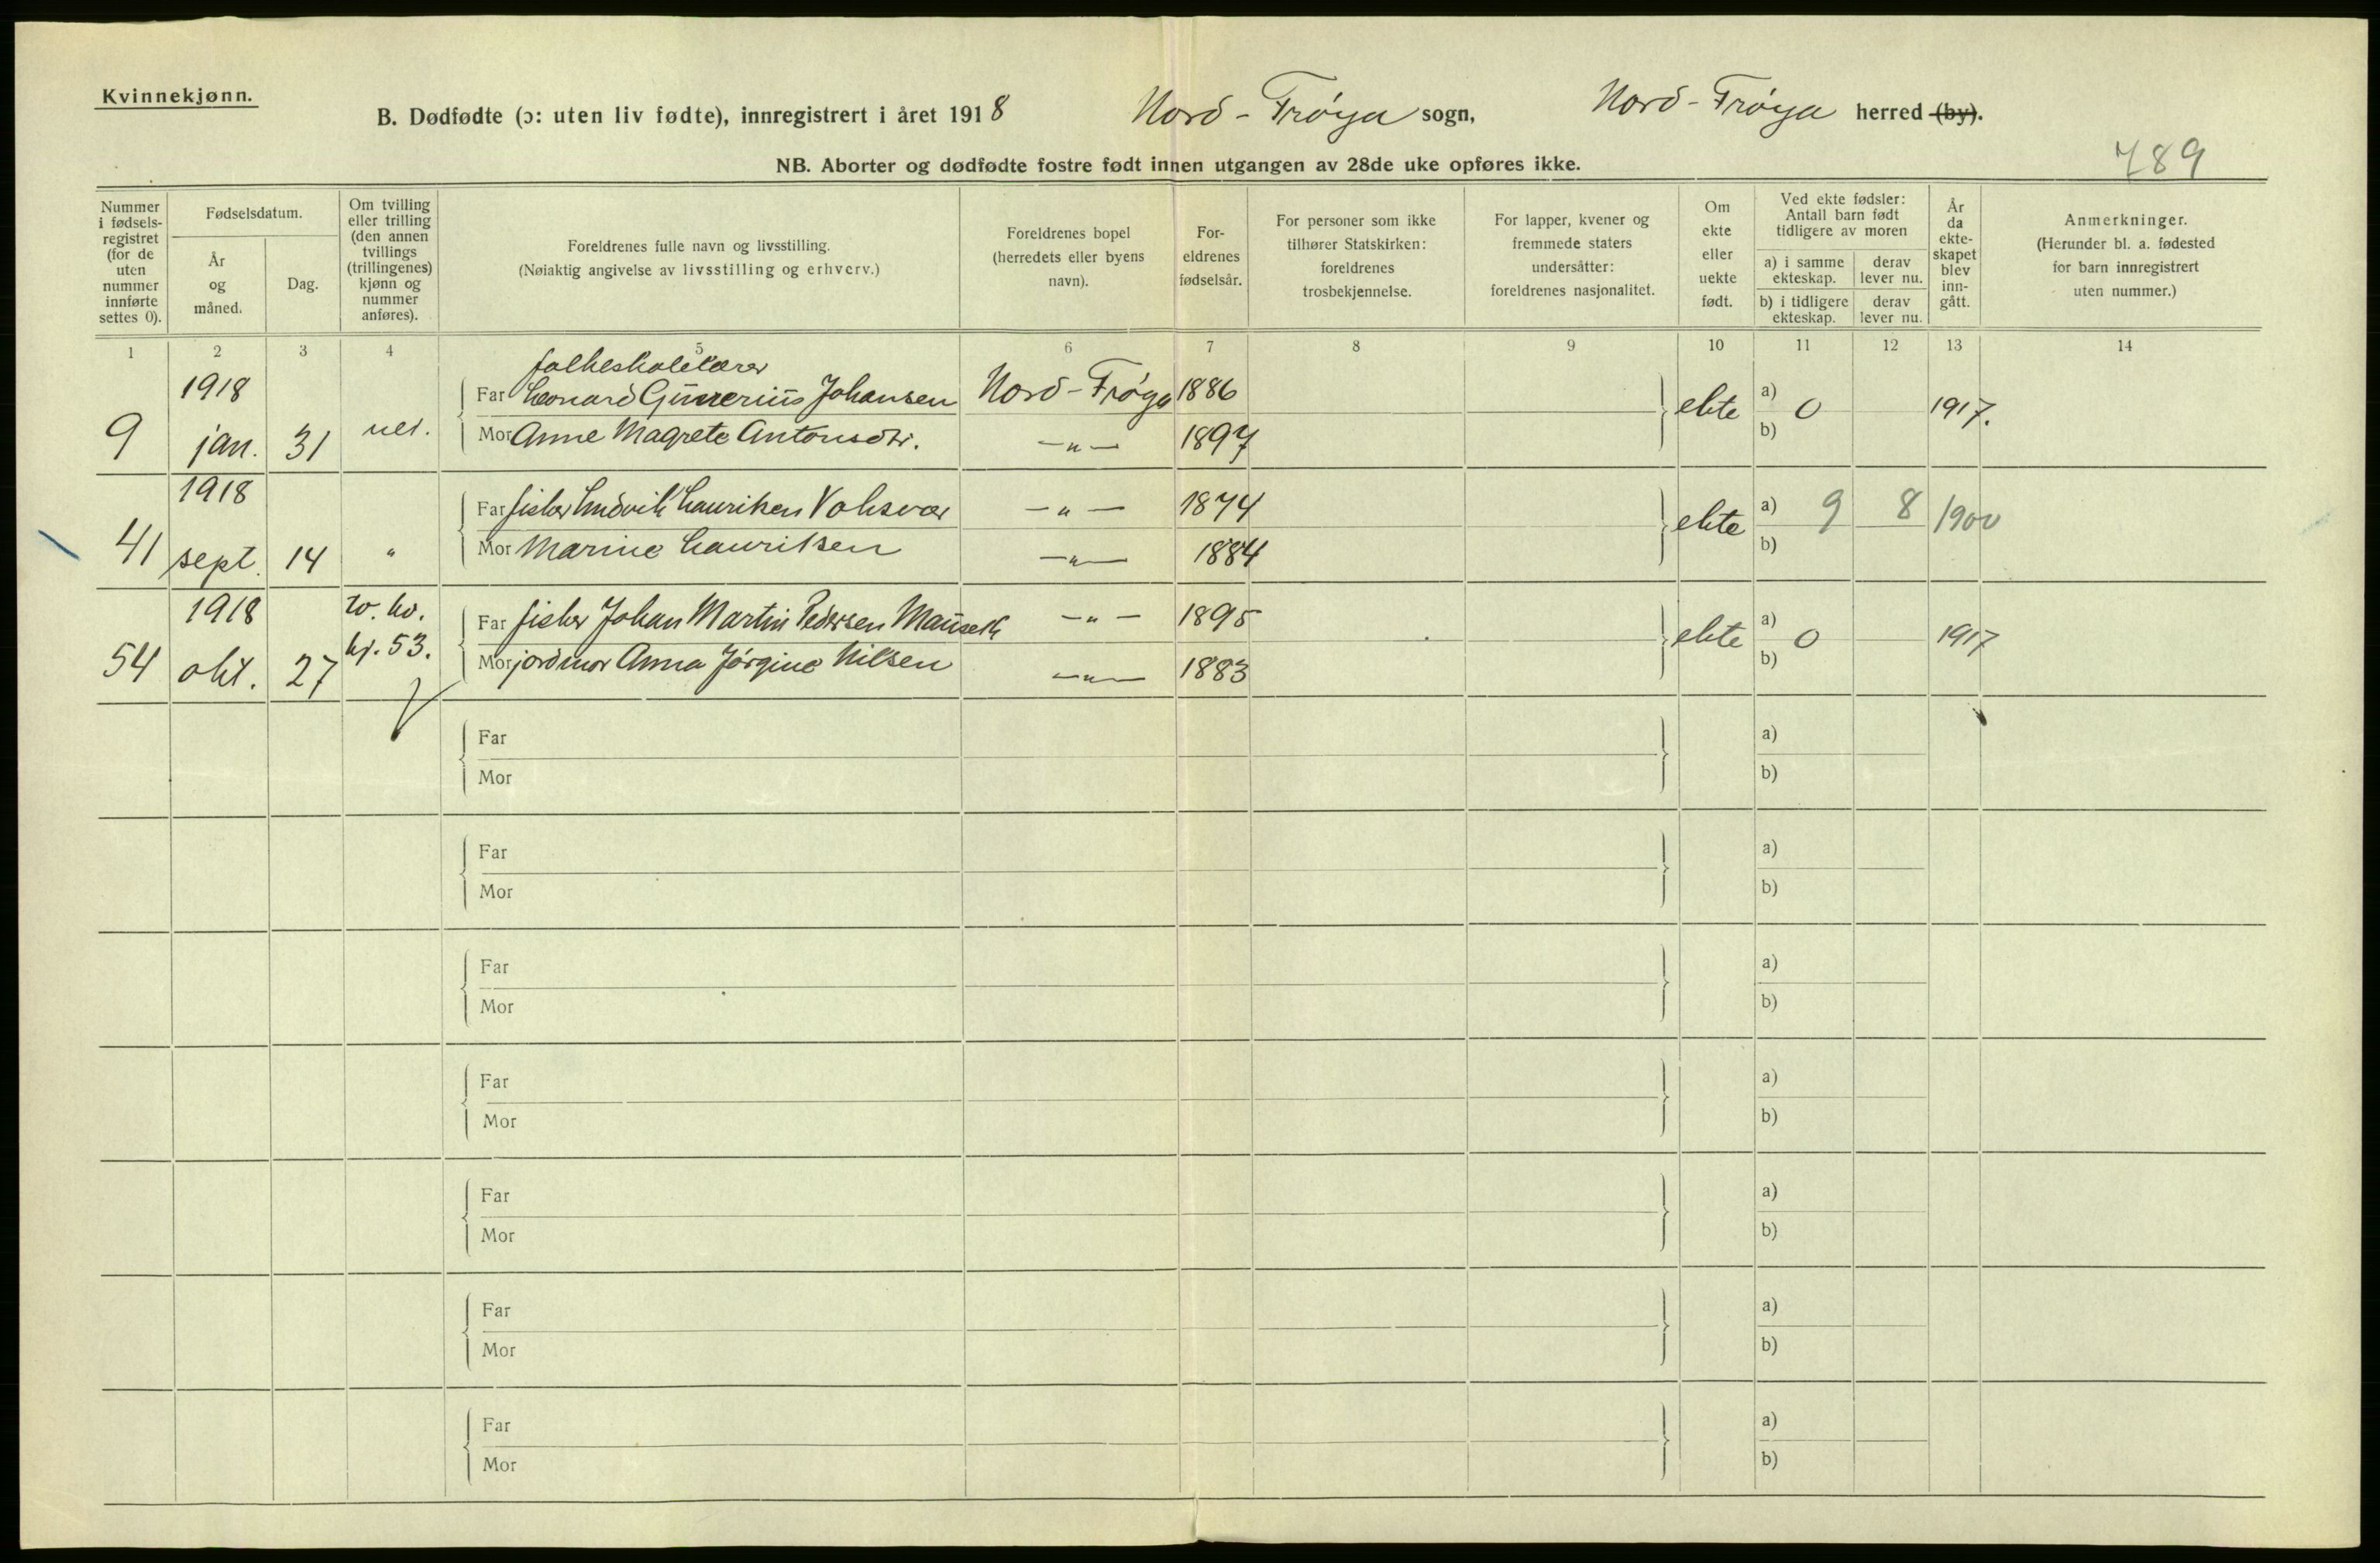 Kvinnekjønn.
B. Dødfødte (ɔ: uten liv fødte), innregistrert i året 1918 Nord-Frøya sogn, Nord-Frøya herred (by).
NB. Aborter og dødfødte fostre født innen utgangen av 28de uke opføres ikke.
789
Nummer i fødsels-registret (for de uten nummer innførte settes 0).
Fødselsdatum.
År og måned.
Dag.
Om tvilling eller trilling (den annen tvillings (trillingenes) kjønn og nummer anføres).
Foreldrenes fulle navn og livsstilling.
(Nøiaktig angivelse av livsstilling og erhverv.)
Foreldrenes bopel (herredets eller byens navn).
For-eldrenes fødselsår.
For personer som ikke tilhører Statskirken: foreldrenes trosbekjennelse.
For lapper, kvener og fremmede staters undersåtter: foreldrenes nasjonalitet.
Om ekte eller uekte født.
Ved ekte fødsler: Antall barn født tidligere av moren
a) i samme ekteskap. derav lever nu.
b) i tidligere ekteskap. derav lever nu.
År da ekte-skapet blev inn-gått.
Anmerkninger.
(Herunder bl. a. fødested for barn innregistrert uten nummer.)
1 2 3 4 5 6 7 8 9 10 11 12 13 14
folkeskolelærer
1918 Far Leonard Gunerius Johansen Nord-Frøya 1886 ekte a) 0 1917.
9 jan. 31 Mor Anne Magrete Antonsdtr. -"- 1897 b)
1918 Far fisker Ludvik Lauriksen -"- 1874 ekte a) 9 8 1900
41 sept. 14 " Mor Marine Lauriksen -"- 1884 b)
1918 tv. kv. Far fisker Johan Martin Pedersen -"- 1895 ekte a) 0 1917
54 okt. 27 kj. 53. Mor jordmor Anna Jørgine Nilsen -"- 1883 b)
Far a)
Mor b)
Far a)
Mor b)
Far a)
Mor b)
Far a)
Mor b)
Far a)
Mor b)
Far a)
Mor b)
Far a)
Mor b)